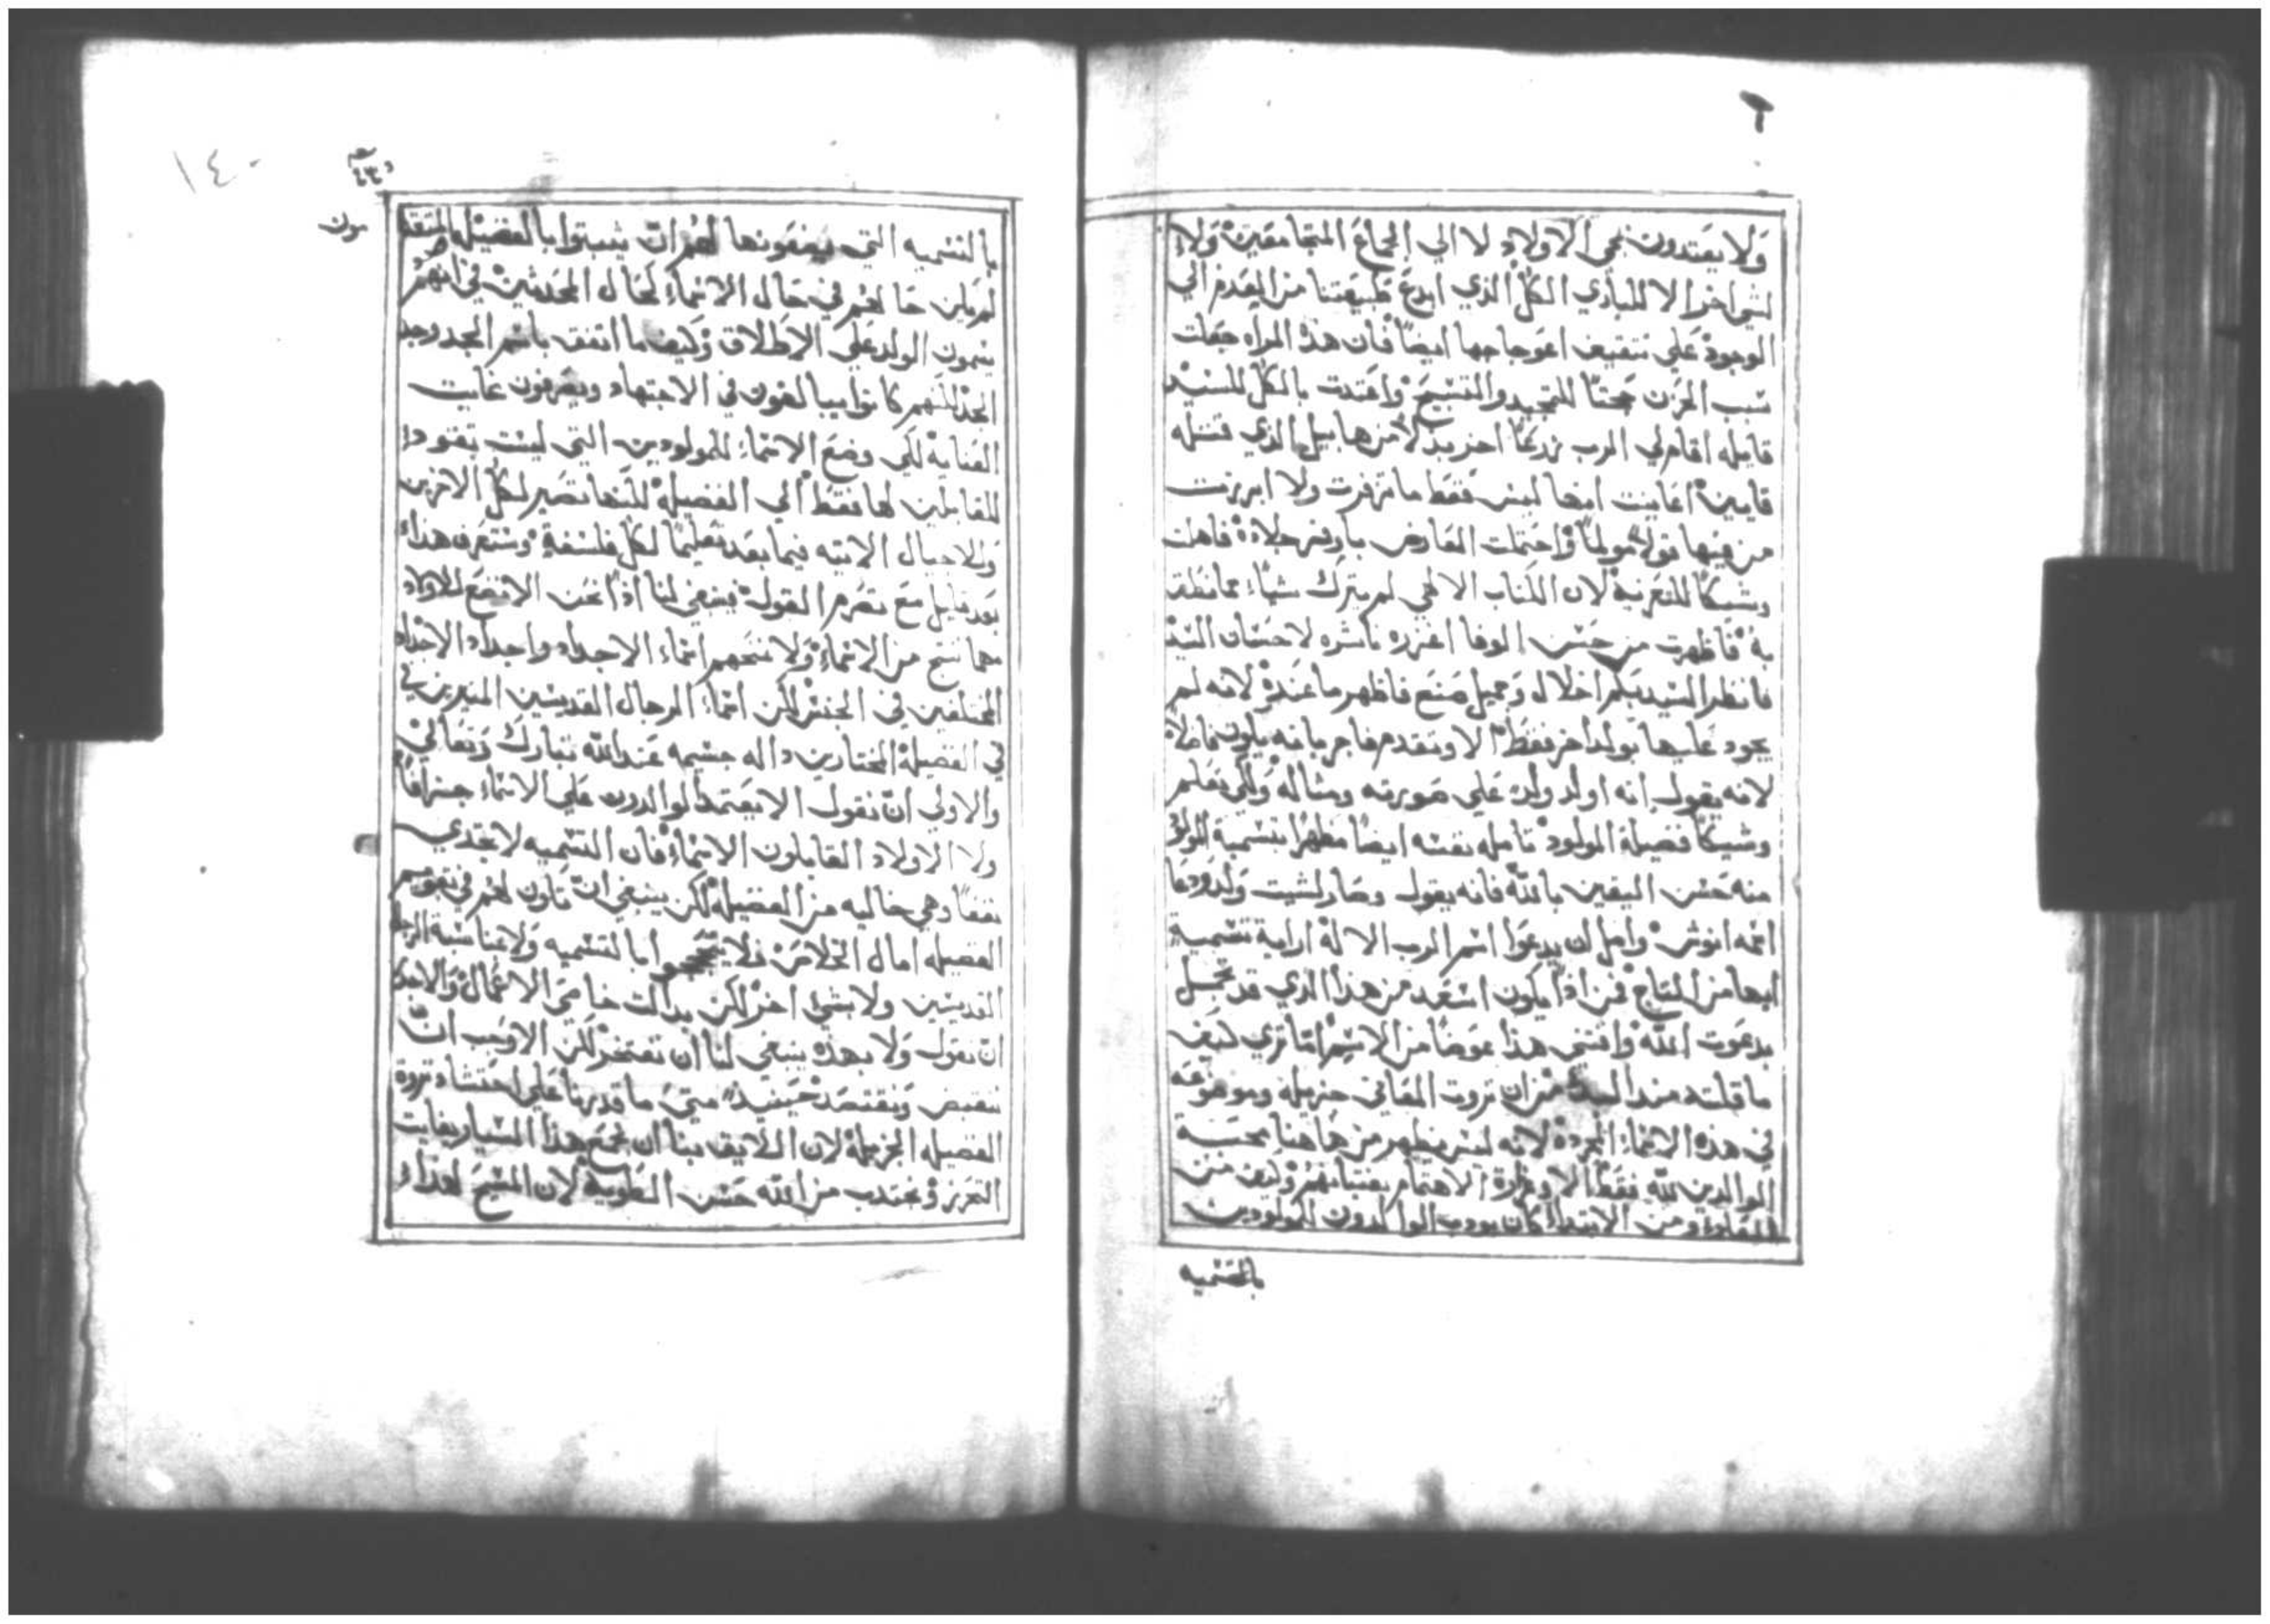 ولا يعتدون نجي الاولاد لا الي الجماع المتجامعين ولا
لشي اخر الا للباري الكل الذي ابدع طبيعتنا من العدم الي
الوجود علي تثقيف اعوجاجها ايضا فان هذه المراه جعلت
سبب الحزن للتمجيد والتسبيح واعتدت بالكل للسيد
قايله اقام لي الرب زرعا اخر بدلا من هابيل الذي قتله
قايين اعاينت انها ليس فقط ما تزفرت ولا ابرزت
من فيها قولا مولما واحتملت العارض باوفر جلادة فاهلت
وشيكا للتعزية لان الكتاب الالهي لم يترك شياء مما نطقت
به فاظهرت من حسن الوفا اغزره ناشره لاحسان السيد
فانظر السيد بكم اجلال وجميل صنع فاظهر ما عنده لانه لم
يجود عليها بولد اخر فقط الا وتقدم فاجر بانه يكون فاضلا
لانه يقول انه اولد ولد علي صورته ومثاله ولكي نعلم
وشيكا فضيلة المولود تامله نفسه ايضا مظهرا بتسمية المولود
منه حسن اليقين بالله فانه يقول وصار لشيت ولد ودعا
اسمه انوش وامل ان يدعوا اسم الرب الاله اراية تسمية
ابها من التاج فمن اذا يكون اسعد من هذا الذي قد تجمل
بدعوت الله واقتني هذا عوضا من الاسم اما تري كيف
ما قلته منذ البدء من ان ثروت المعاني جزيله وموضوعه
في هذه الاسماء المجردة لانه ليس يظهر من هاهنا محسة
الوالدين لله فقط الا وغزارة الاهتمام بفتيانهم وكيف من
القدم ومن الابتداء كان يودب الوالدون المولودين
بالتسميه
١٤٠
بالتسميه التي يضعونها لهم ان يثبتوا بالفضيله المتقد
مون
لم يكن حالهم في حال الاسماء كحال المحدثين في انهم
يسمون الولد علي الاطلاق وكيف ما اتفق باسم الجد وجد
الجد لكنهم كانوا يبالغون في الاجتهاد ويصرفون غايت
العناية لكي وضع الاسماء للمولودين التي ليست تقود
للقابلين لها فقط الي الفضيلة لكنها تصير لكل الاخرين
وللاجيال الاتيه فيما بعد تعليما لكل فلسفة وستعرف هذا
بعد قليل مع تصرم القول فينبغي لنا اذا نحن الا نضع للاولاد
مهما سنح من الاسماء ولا نمنحهم اسماء الاجداد واجداد الاجداد
المختلفين في الجنس لكن اسماء الرجال القديسين المبرزين
في الفضيلة المختارين داله جسيمه عند الله تبارك وتعالي
والاولي ان نقول الا يعتمد الوالدون علي الاسماء جزافا
ولا الاولاد القابلون الاسماء فان التسميه لا تجدي
نفعا وهي خاليه من الفضيلة لكن ينبغي ان تكون لهم في تقويم
الفضيله امال الخلاص ولا ابا لتسميه ولا بمناسبة الرجال
القديسين ولا بشي اخر لكن بدالت خاصي الاعمال والاحري
ان نقول ولا بهذه ينبغي لنا ان نفتخر لكن الاوجب ان
ننقبض ونقتصد حينيذ متي ما قدرنا علي احتشاد ثروة
الفضيله الجزيله لان اللايق بنا ان نجمع هذا اليسار بغايت
التحرز ونجتدب من الله حسن الطوية لان المسيح لهذا